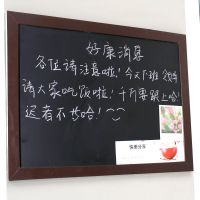 好康消息
各位请注意啦！今天下班
请大家吃饭啦！千万要跟上哈！
迟者不候哈！
快乐分享